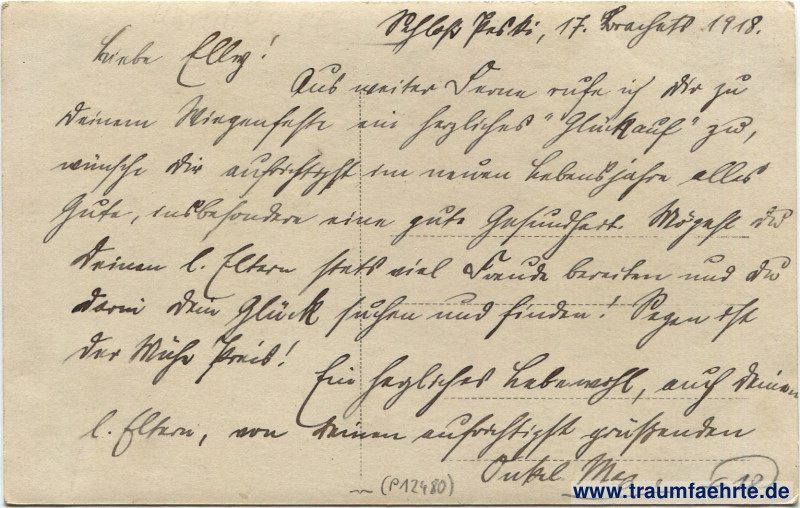 Schloß Peski, 17. Brachets 1918.
Liebe Elly!
Aus weiter Ferne rufe ich Dir zu
Deinem Wiegenfeste ein herzliches "Glückauf" zu,
wünsche Dir aufrichtigst im neuen Lebensjahre alles
Gute, insbesondere eine gute Gesundheit. Mögest du
Deinen l. Eltern stets viel Freude bereiten und du
darin dein Glück suchen und finden! Segen ist
der Mühe Preis!
Ein herzliches Lebewohl, auch deinen
l. Eltern, von Deinen aufrichtigst grüßenden
Onkel Max
(P12480)
18
www.traumfaehrte.de